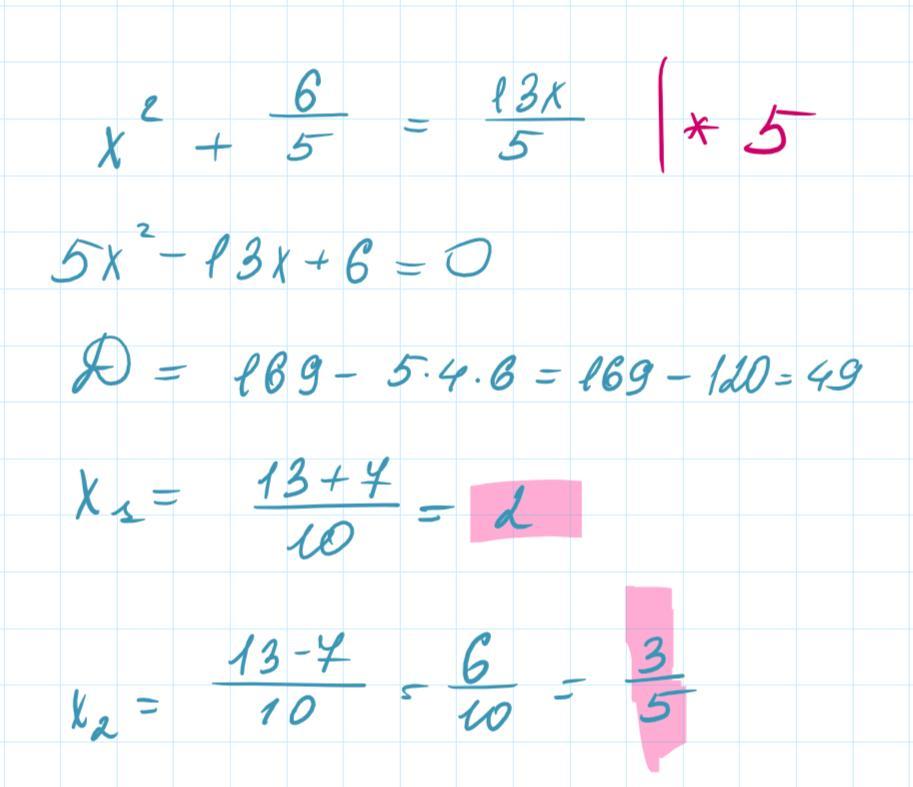 x² + 6/5 = 13x/5 | * 5
5x² - 13x + 6 = 0
D = 169 - 5·4·6 = 169 - 120 = 49
x₁ = (13+7)/10 = 2
x₂ = (13-7)/10 = 6/10 = 3/5